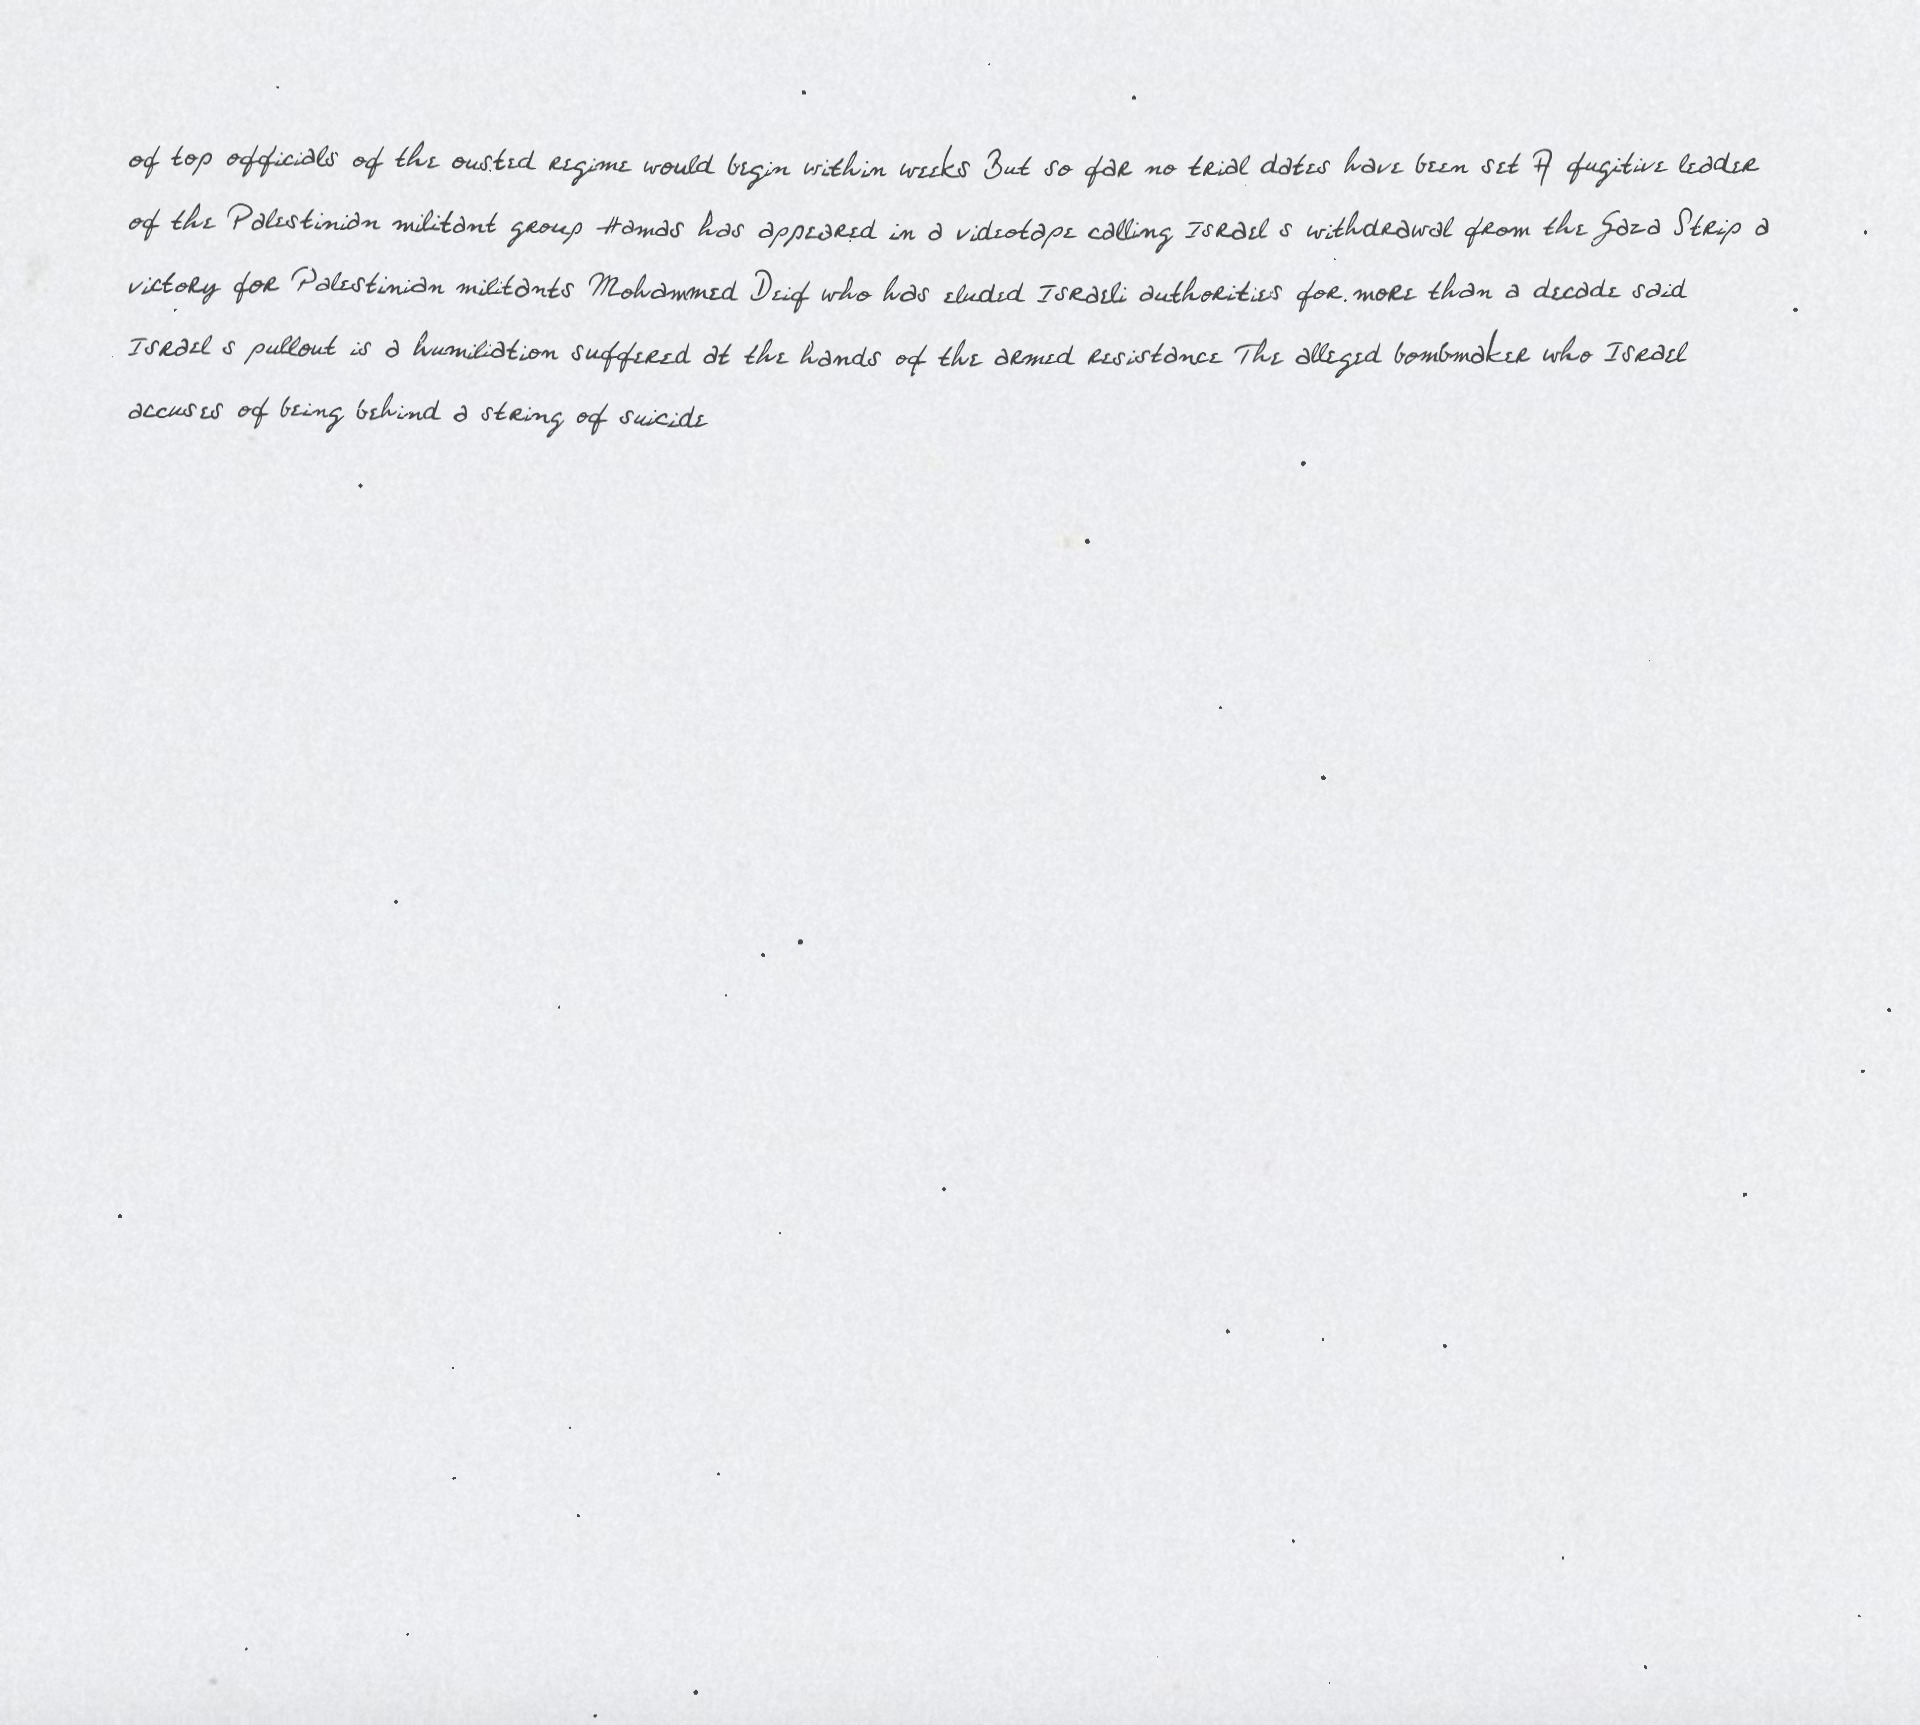 of top officials of the ousted regime would begin within weeks But so far no trial dates have been set A fugitive leader
of the Palestinian militant group Hamas has appeared in a videotape calling Israel s withdrawal from the Gaza Strip a
victory for Palestinian militants Mohammed Deif who has eluded Israeli authorities for more than a decade said
Israel s pullout is a humiliation suffered at the hands of the armed resistance The alleged bombmaker who Israel
accuses of being behind a string of suicide